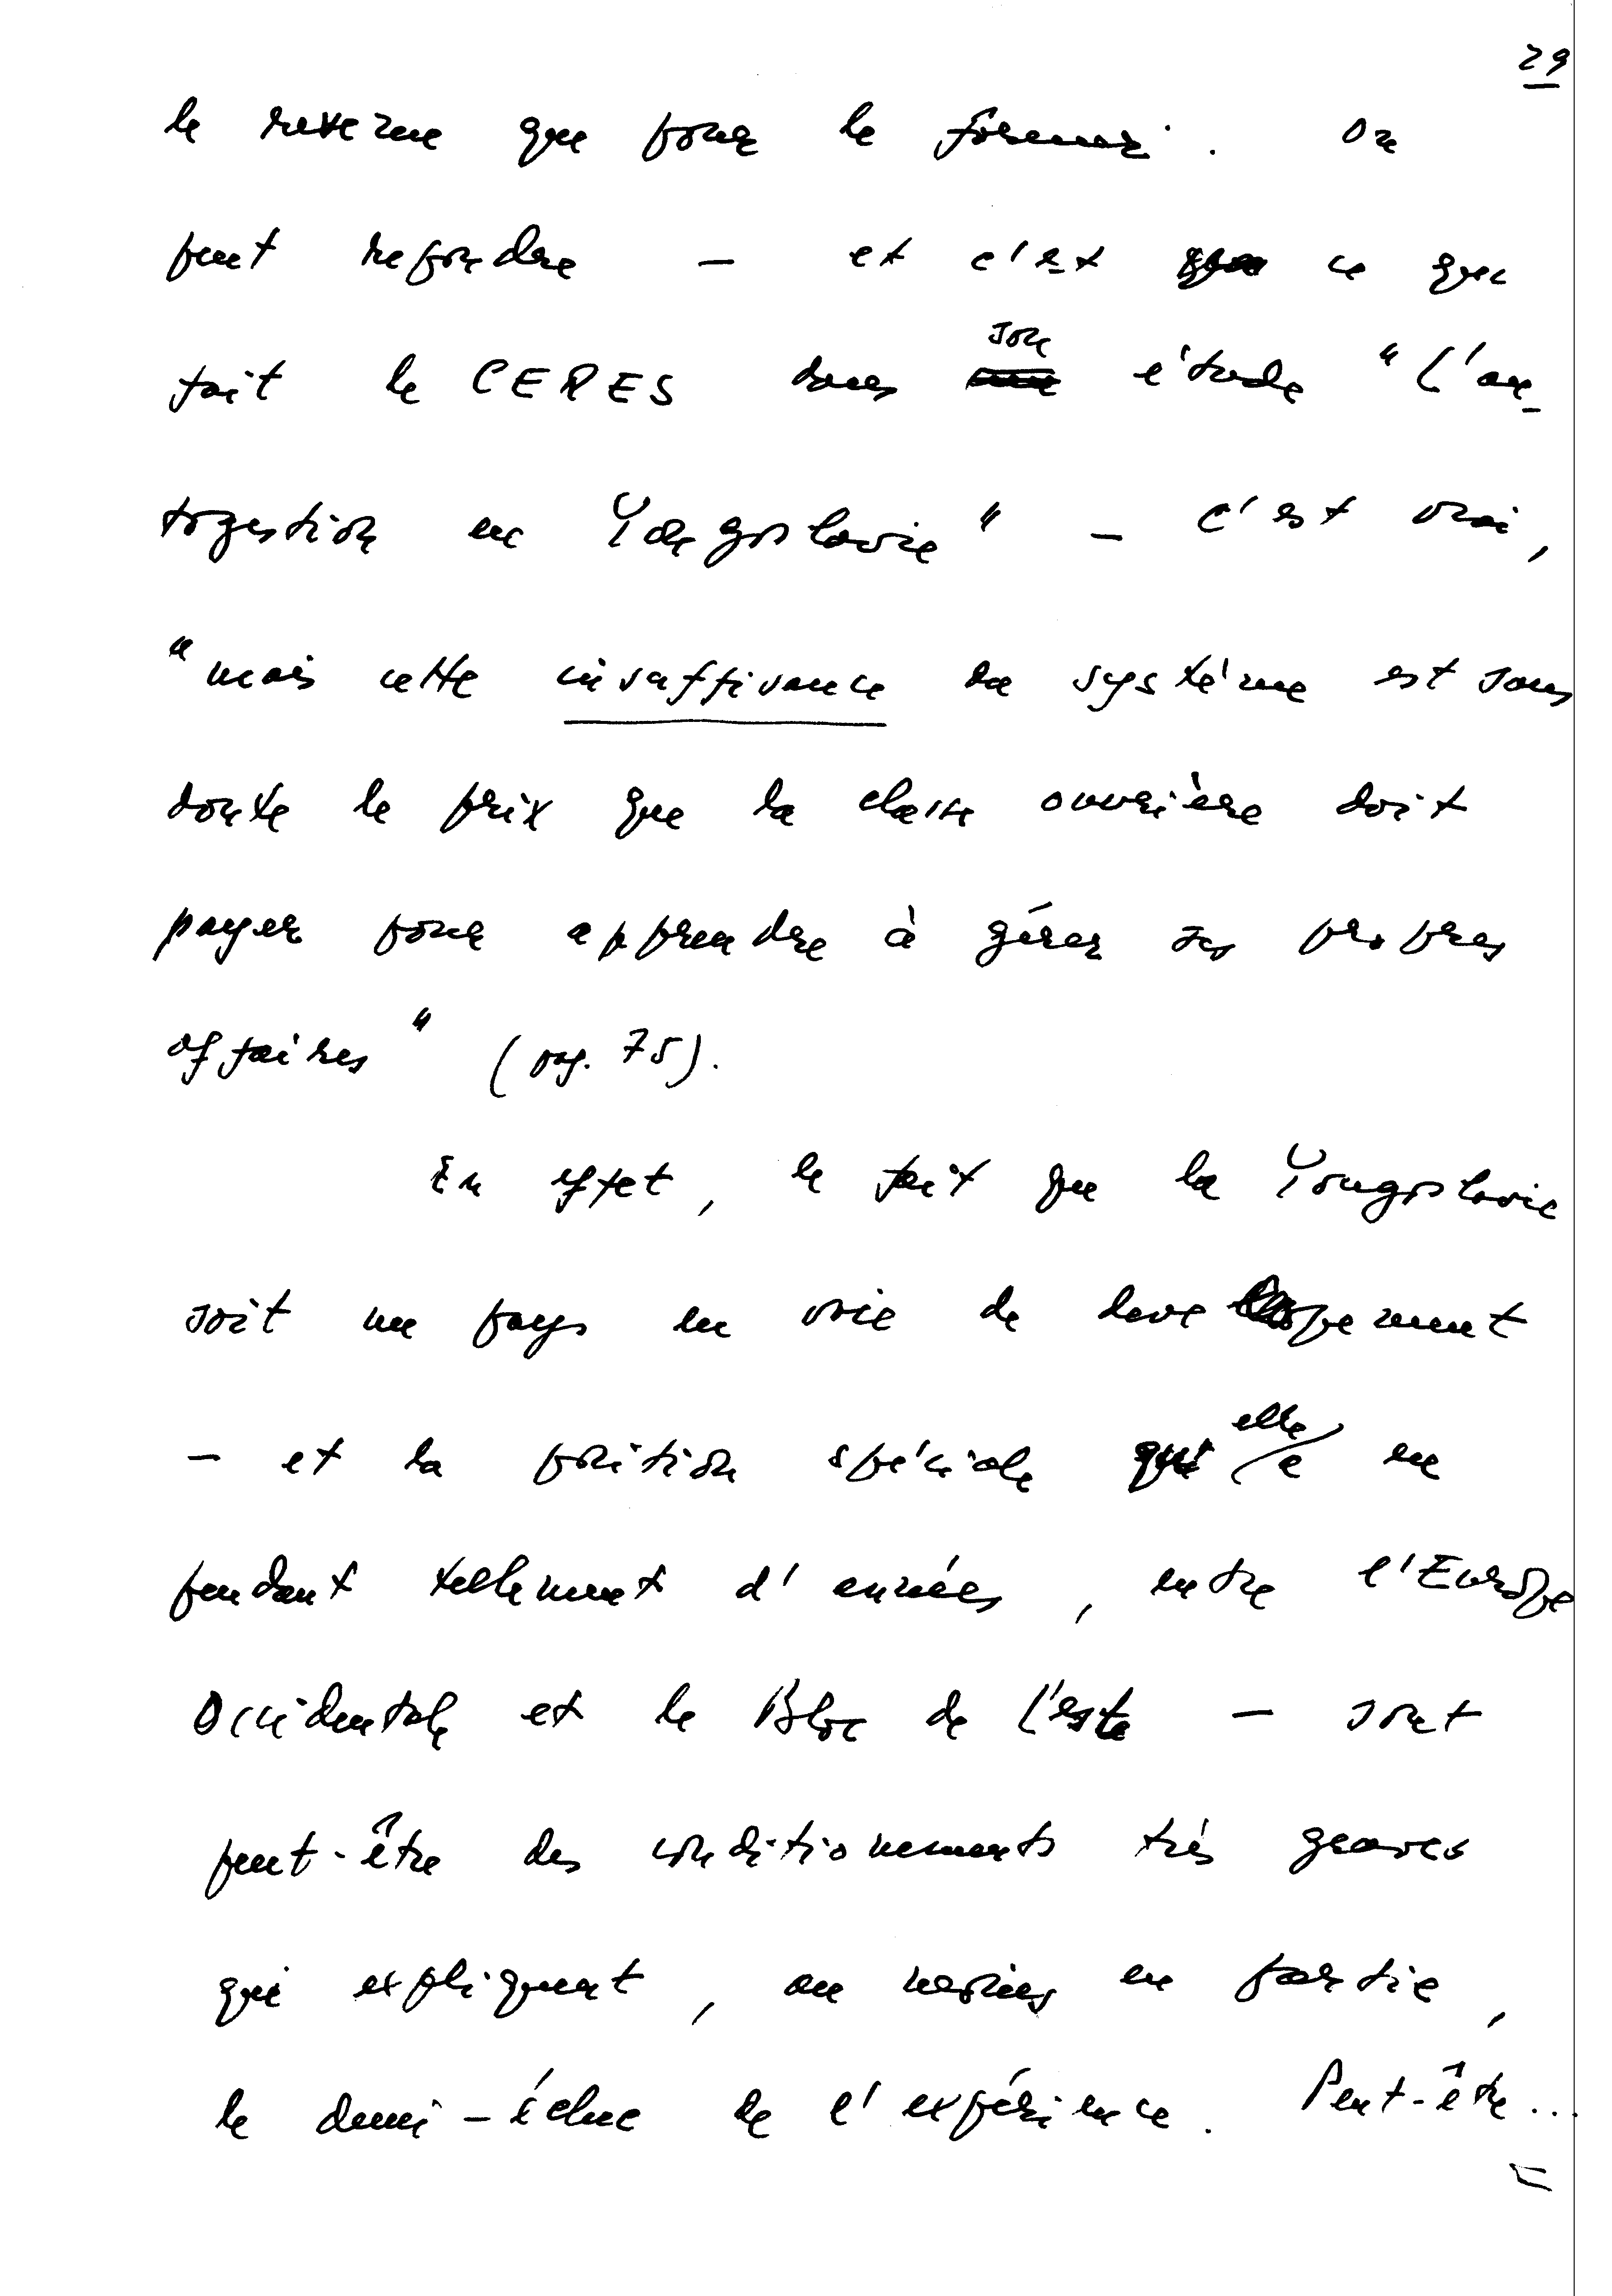 29
le revenu que pour le former. On
peut repondre — et c'est ce que
fait le CERES dans son étude "L'au-
togestion en Yougoslavie" — c'est vrai,
"mais cette insuffisance du systéme est sans
doute le prix que la classe ouvrière doit
payer pour apprendre à gérer ses propres
affaires" (pag. 75).
En effet, le fait que la Yougoslavie
soit un pays en voie de developement
— et la position spéciale qu'elle a eu
pendant tellement d'années, entre l'Europe
Occidentale et le Bloc de l'este — sont
peut-être des conditionements très graves
qui expliquent, au moins en partie,
le demi-échec de l'expérience. Peut-être...